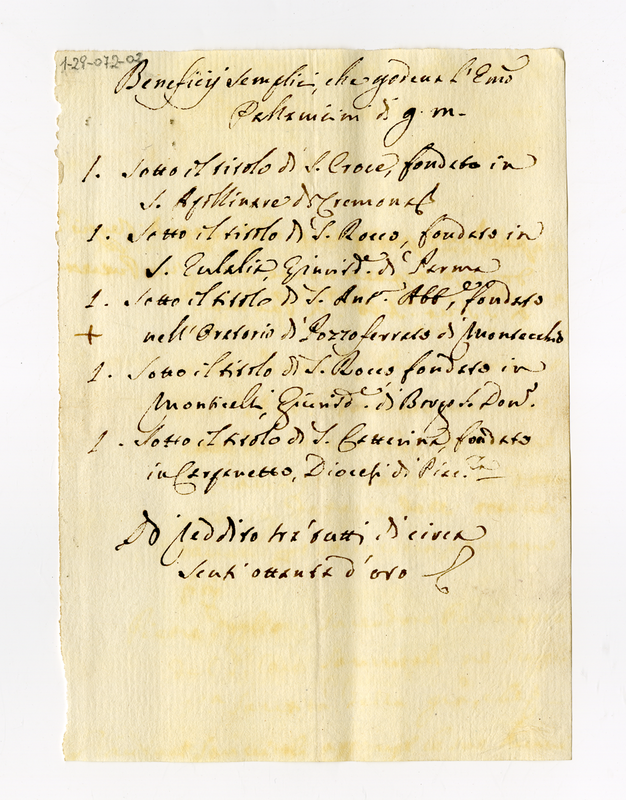 1-29-072-02
Beneficij semplici, che godeva l'Emo
Pallavicini di g. m.
1. Sotto il titolo di S. Croce, fondato in
S. Apollinare di Cremona
1. Sotto il titolo di S. Rocco, fondato in
S. Eulalia, Giurisd. di Parma
1. Sotto il titolo di S. Anto. Abbe, fondato
+ nell'Oratorio di Pozzoferrato di Montecchio
1. Sotto il titolo di S. Rocco fondato in
Monticelli, Giurisd. di Borgo S. Don.
1. Sotto il titolo di S. Catterina, fondato
in Carpaneto, Diocesi di Piac.za
Di reddito trà tutti di circa
scuti ottanta d'oro